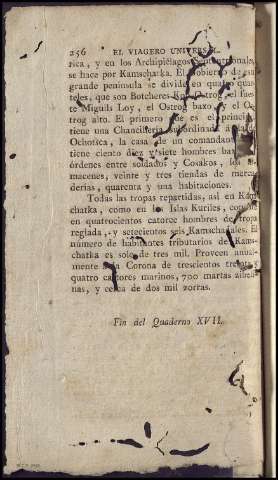 256 EL VIAGERO UNIVERSAL.
rica, y en los Archipiélagos Septentrionales,
se hace por Kamscharka. El gobierno de esa
grande peninsula se divide en quatro quar-
teles, que son Botcheres Ko Ostrog, el fuer-
te Miguils Loy, el Ostrog baxo, y el Os-
trog alto. El primero de es el principal
tiene una Chancillería subordinada a la de
Ochotsca, la casa de un comandante
tiene ciento diez y siete hombres baxo
órdenes entre soldados y Cosakos, los al-
macenes, veinte y tres tiendas de merca-
derias, quarenta y una habitaciones.
Todas las tropas repartidas, asi en Kams-
chatka, como en los Islas Kuriles, consis-
en quatrocientos catorce hombres de tropa
reglada, y setecientos seis Kamschadales. El
número de habitantes tributarios de Kams-
chatka es solo de tres mil. Proveen anual-
mente a la Corona de trescientos treinta y
quatro castores marinos, 700 martas
nas, y cerca de dos mil zorras.
Fin del Quaderno XVII.